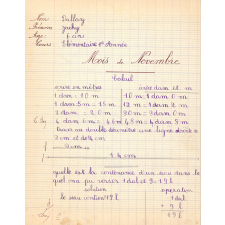 Nom
Prénom
Age: 6 ans
Cours Elémentaire 1ère Année
Mois de Novembre
Calcul
écrire en mètres écrire dam et m
1 dam = 10 m 10 m = 1 dam 0 m
1 dam 5 m = 15 m 12 m = 1 dam 2 m
2 dam = 20 m 90 m = 9 dam 0 m
4 dam 6 m = 46 m 48 m = 4 dam 8 m
tracer au double décimètre une ligne droite
et de
quelle est la contenance d'un seau dans le
quel ma verser 1 dal et 9 l
solution opération
le seau contient 19 l 1 dal
+ 9 l
19 l